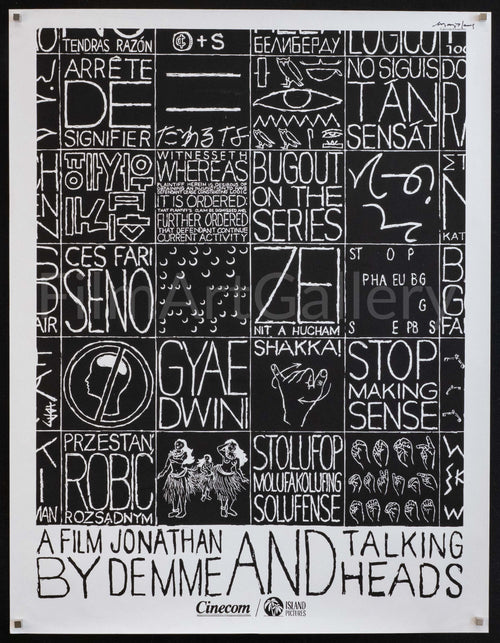 TENDRAS RAZÓN
+ S
БЕЛИБЕРДУ
LÓGICO
ARRÊTE
DE
SIGNIFIER
だわるな
NO SIGUIS
TÁN
SENSÁT
WITNESSETH
WHEREAS
PLAINTIFF HEREIN IS DESIROUS OF
IT IS ORDERED
FURTHER ORDERED
THAT DEFENDANT CONTINUE
CURRENT ACTIVITY
BUGOUT
ON THE
SERIES
CES FARI
SENO
ZEI
NIT A HUCHAM
ST O P
PHA EU BG
G
S E PB S
FilmArtGallery
GYAE
DWINI
SHAKKA!
STOP
MAKING
SENSE
PRZESTAŃ
ROBIĆ
ROZSĄDNYM
STOLUFOP
MOLUFAKOLUFING
SOLUFENSE
A FILM JONATHAN
BY DEMME AND TALKING
HEADS
Cinecom / ISLAND
PICTURES